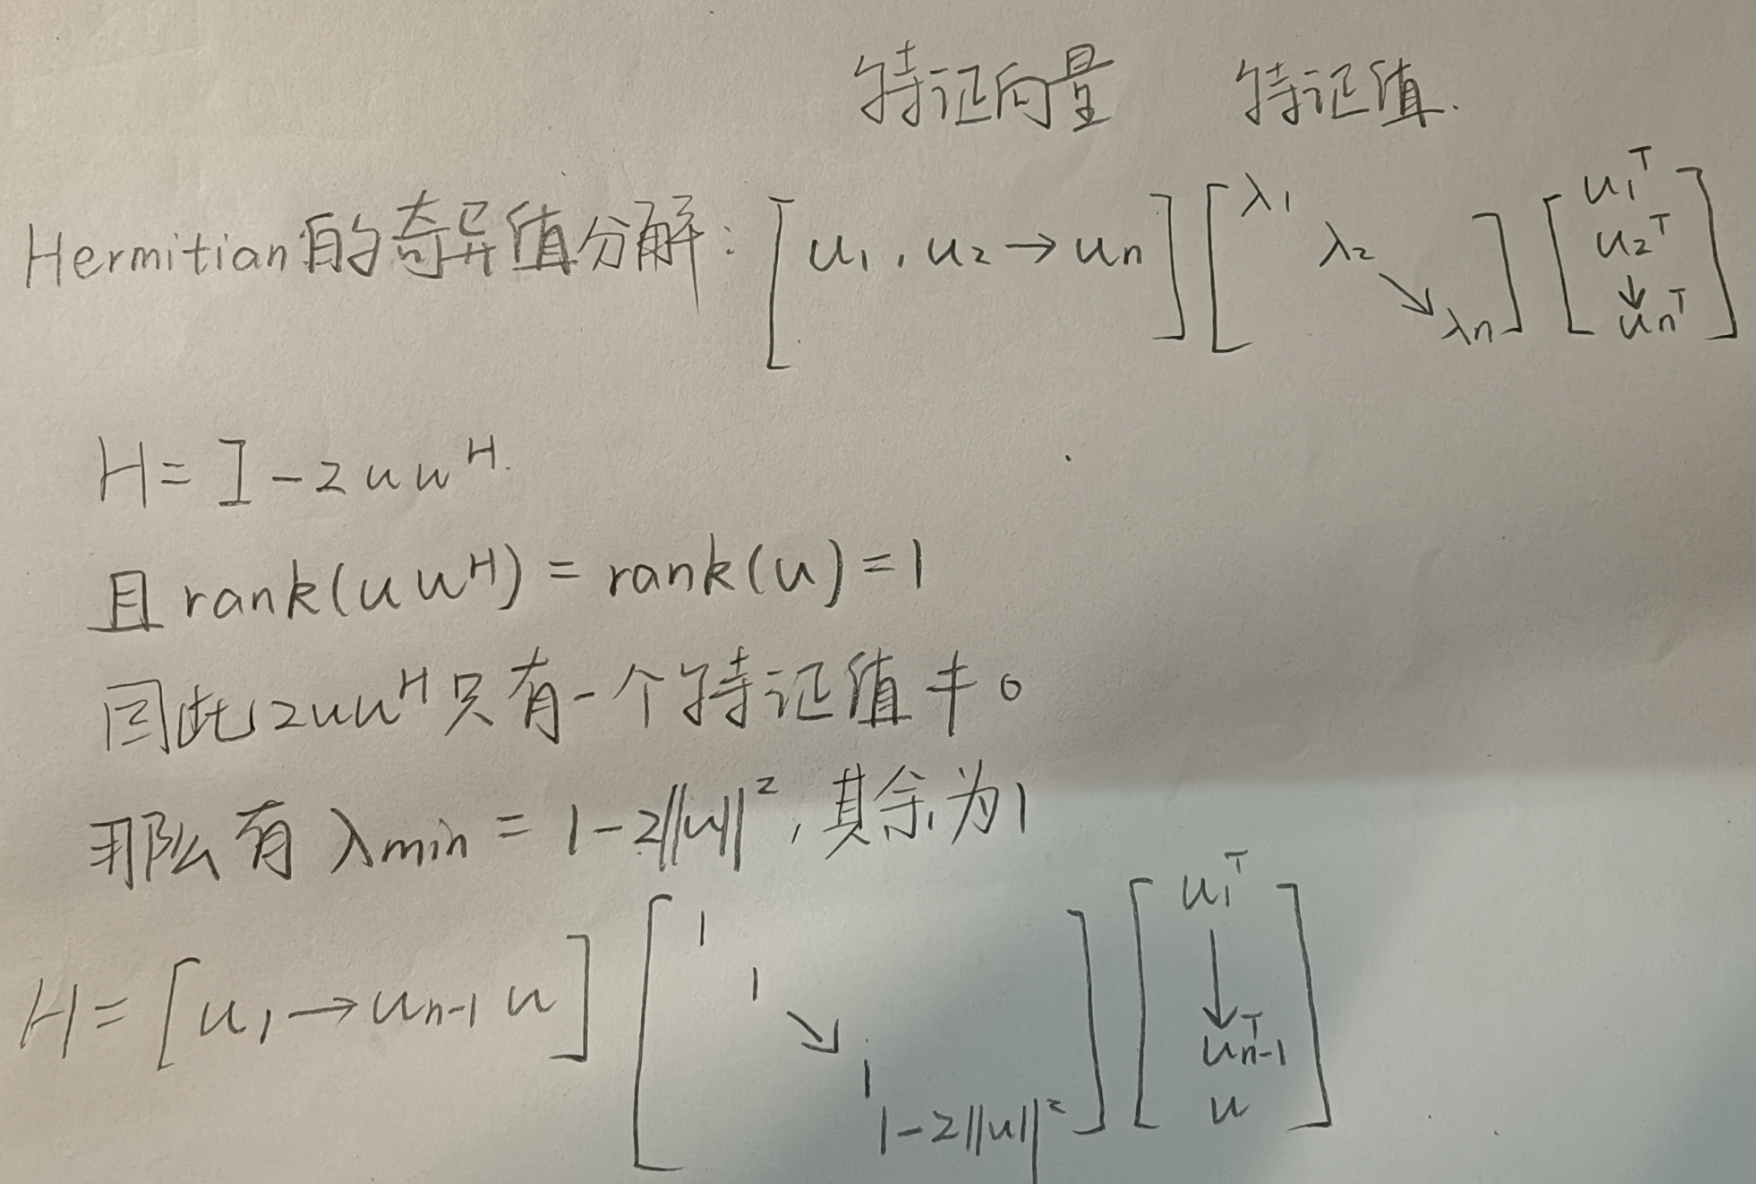 特征向量 特征值.
Hermitian的奇异值分解: [u₁, u₂ → uₙ] [λ₁ λ₂ ↘ λₙ] [u₁ᵀ u₂ᵀ ↓ uₙᵀ]
H = I - 2uuᴴ.
且 rank(uuᴴ) = rank(u) = 1
因此2uuᴴ只有一个特征值≠0
那么有 λmin = 1-2||u||², 其余为1
H = [u₁ → uₙ₋₁ u] [1 1 ↘ 1 1-2||u||²] [u₁ᵀ ↓ uₙ₋₁ᵀ u]